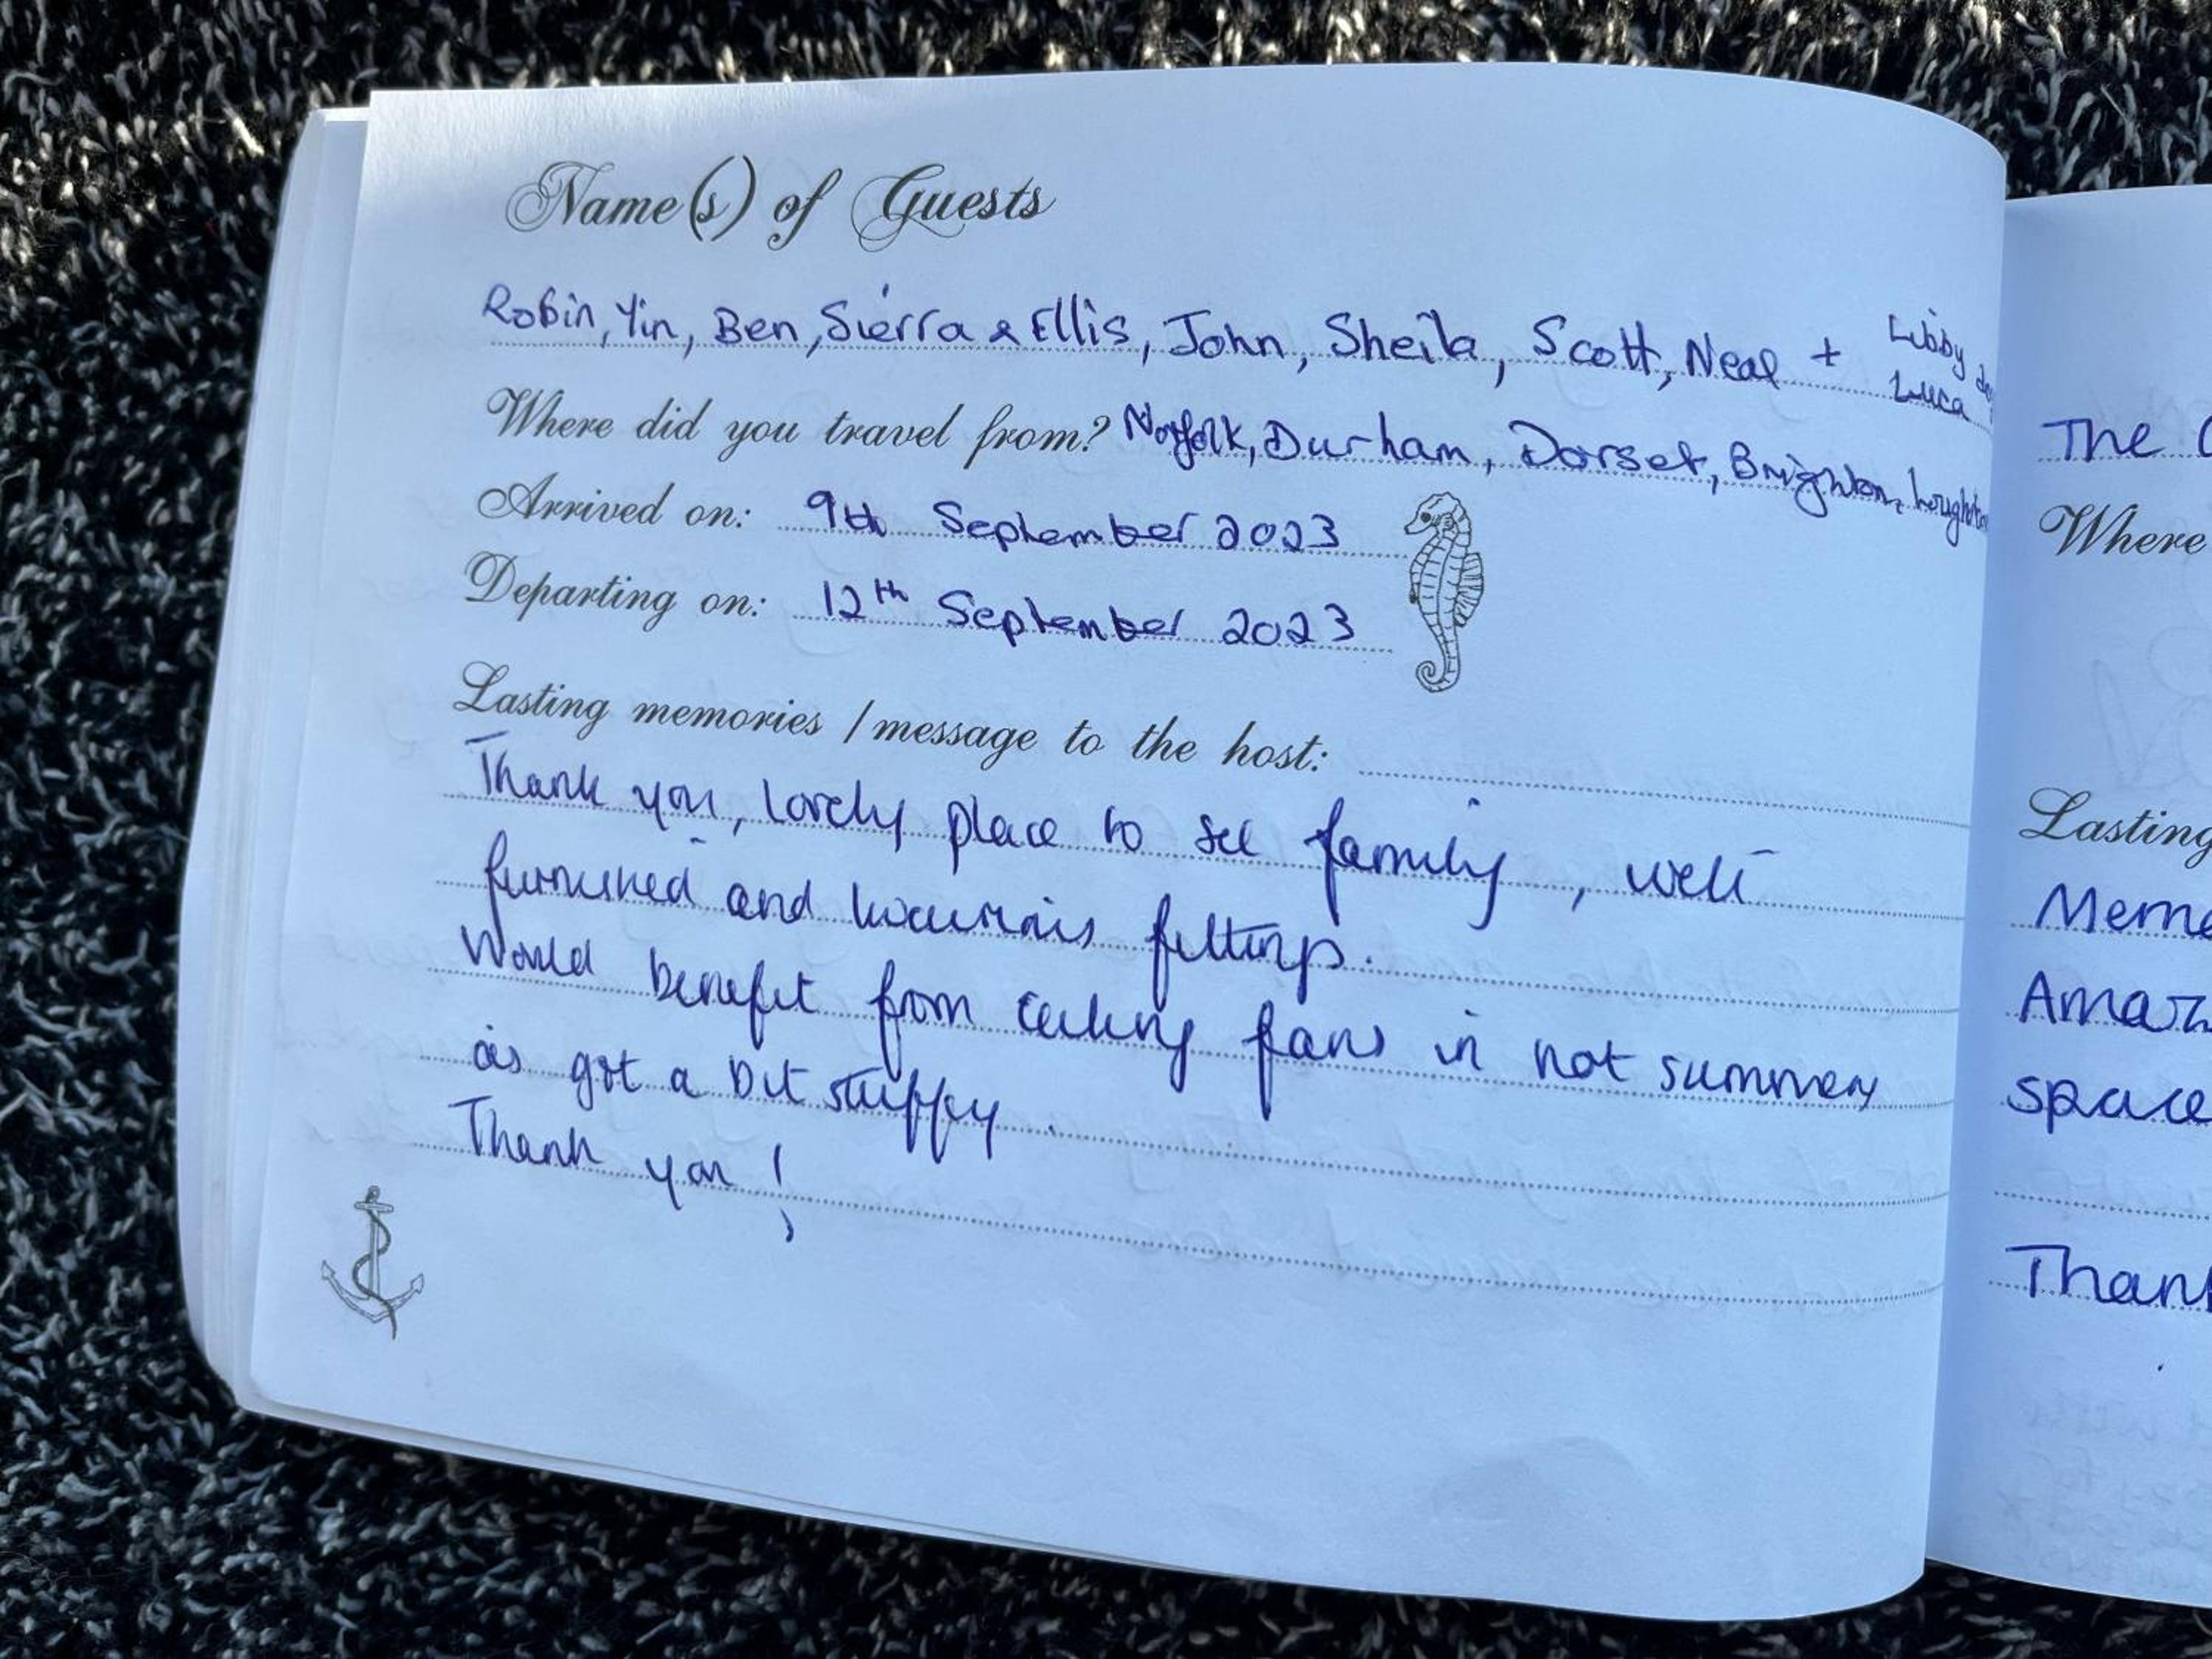 Name(s) of Guests
Robin, Yin, Ben, Sierra & Ellis, John, Sheila, Scott, Neal + Libby
Luca
Where did you travel from? Norfolk, Durham, Dorset, Brighton,
Arrived on: 9th September 2023
Departing on: 12th September 2023
Lasting memories / message to the host:
Thank you, lovely place to see family, well
furnished and luxurious fittings.
Would benefit from ceiling fans in hot summer
as got a bit stuffy.
Thank you!
The
Where
Lasting
Mem
Ama
space
Thank